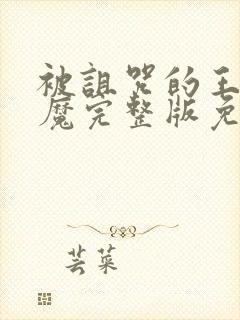 被诅咒的王
魔完整版免
芸菜